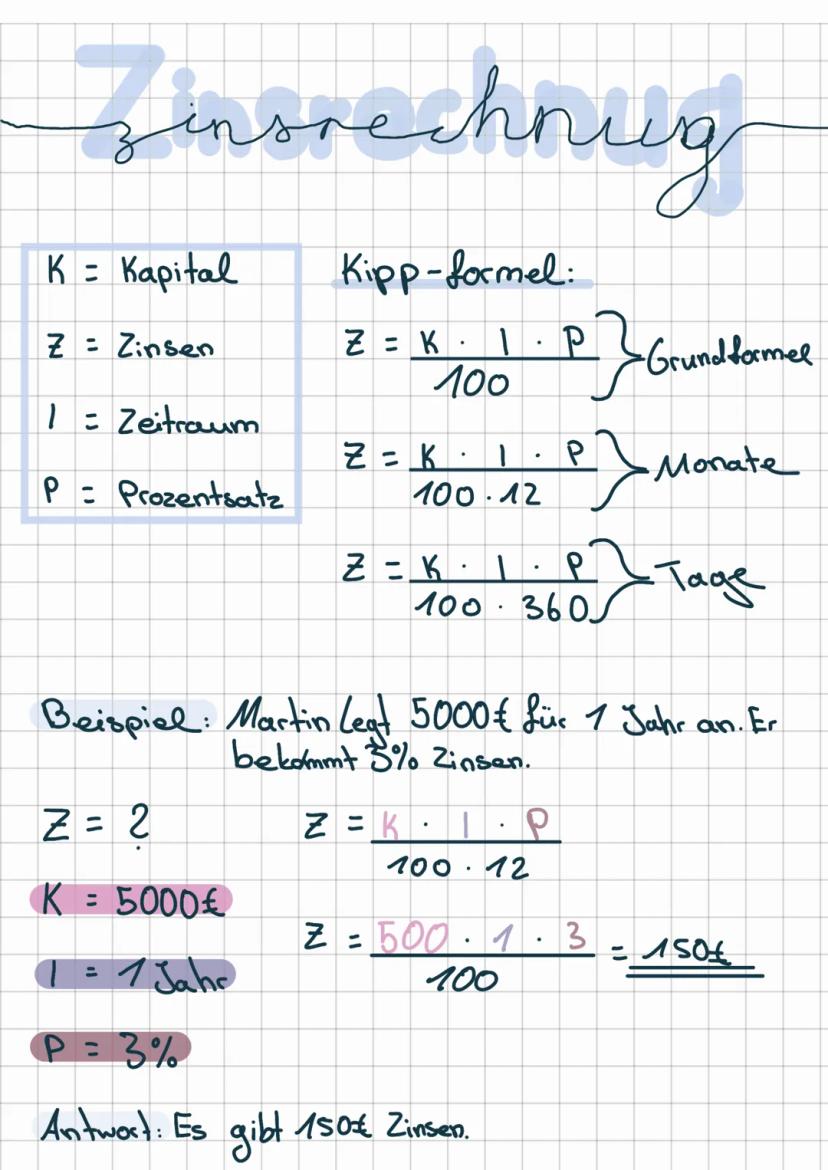 Zinsrechnug
zinsrechnug
K = Kapital
Z = Zinsen
I = Zeitraum
P = Prozentsatz
Kipp-formel:
Z = K · I · P / 100 } Grundformel
Z = K · I · P / 100 · 12 } Monate
Z = K · I · P / 100 · 360 } Tage
Beispiel: Martin legt 5000€ für 1 Jahr an. Er
bekommt 3% Zinsen.
Z = ?
K = 5000€
I = 1 Jahr
P = 3%
Z = K · I · P / 100 · 12
Z = 500 · 1 · 3 / 100 = 150€
Antwort: Es gibt 150€ Zinsen.